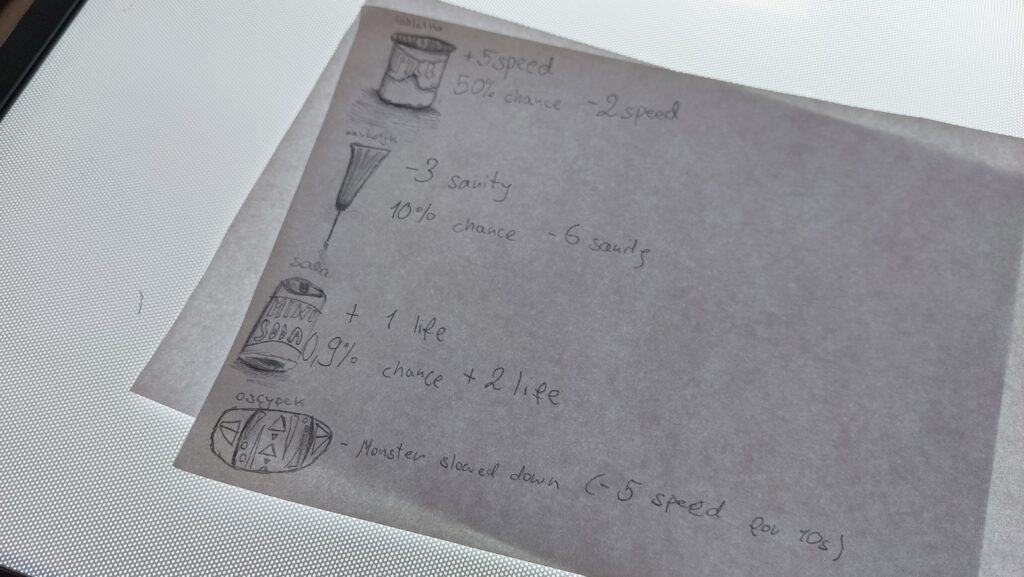 tabletka
+5 speed
50% chance -2 speed
-3 sanity
10% chance -6 sanity
soda
MINT
SODA
+ 1 life
0,9% chance +2 life
oscypek
- Monster slowed down (-5 speed for 10s)